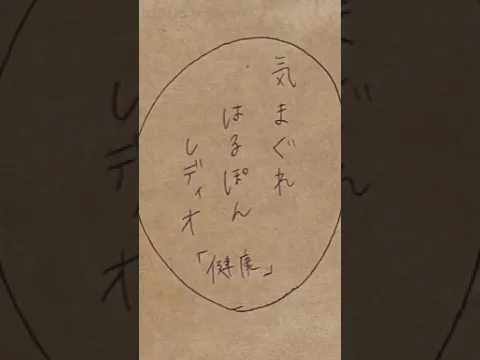 気まぐれ
はるぽん
レディオ
「健康」